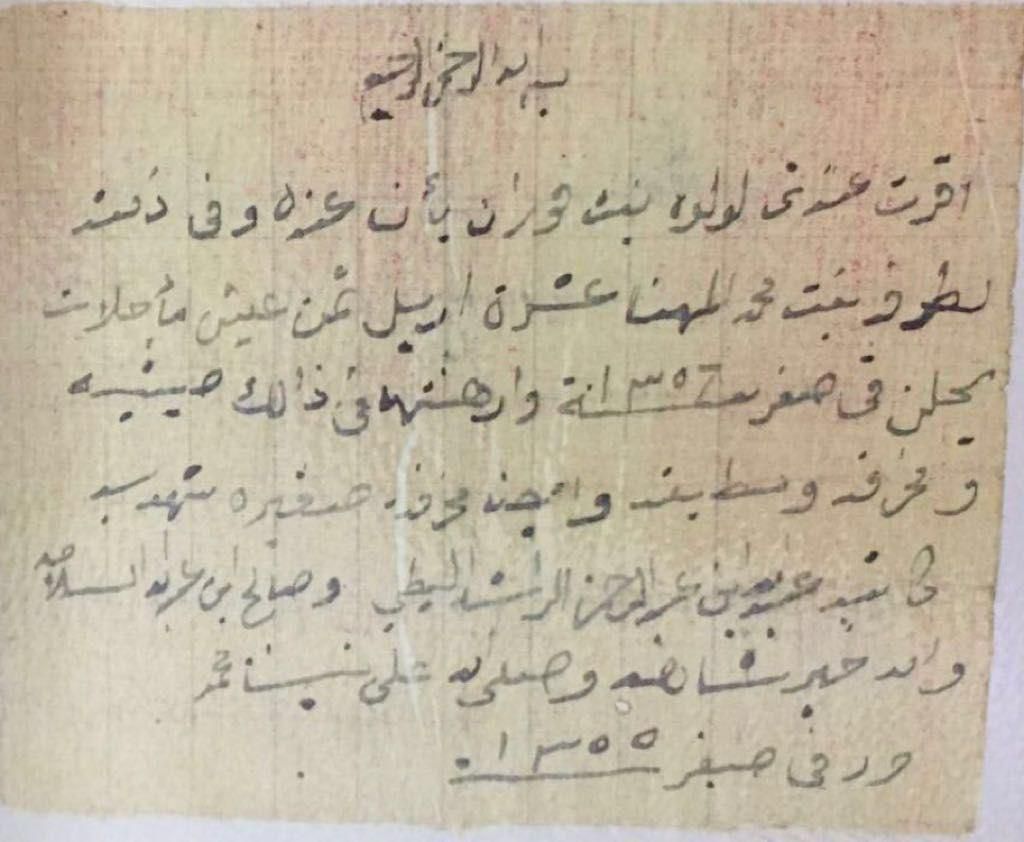 بسم الله الرحمن الرحيم
اقرت عندي لولوه بنت فوزان بأن عنده وفى ذمته
لطرفه بنت محمد المهنا عشرة اريل ثمن عيش مأجلات
يحلن فى صفر سنة ١٣٥٦ وارهنتها فى ذالك صينيه
ومخرفه وسط وصحن مخرفه صغيره شهد به
كاتبه عبدالله ابن عبدالرحمن الراشد وصالح ابن عبدالله السلامه
والله خير شاهد وصلى الله على نبينا محمد
ور فى صفر ١٣٥٥